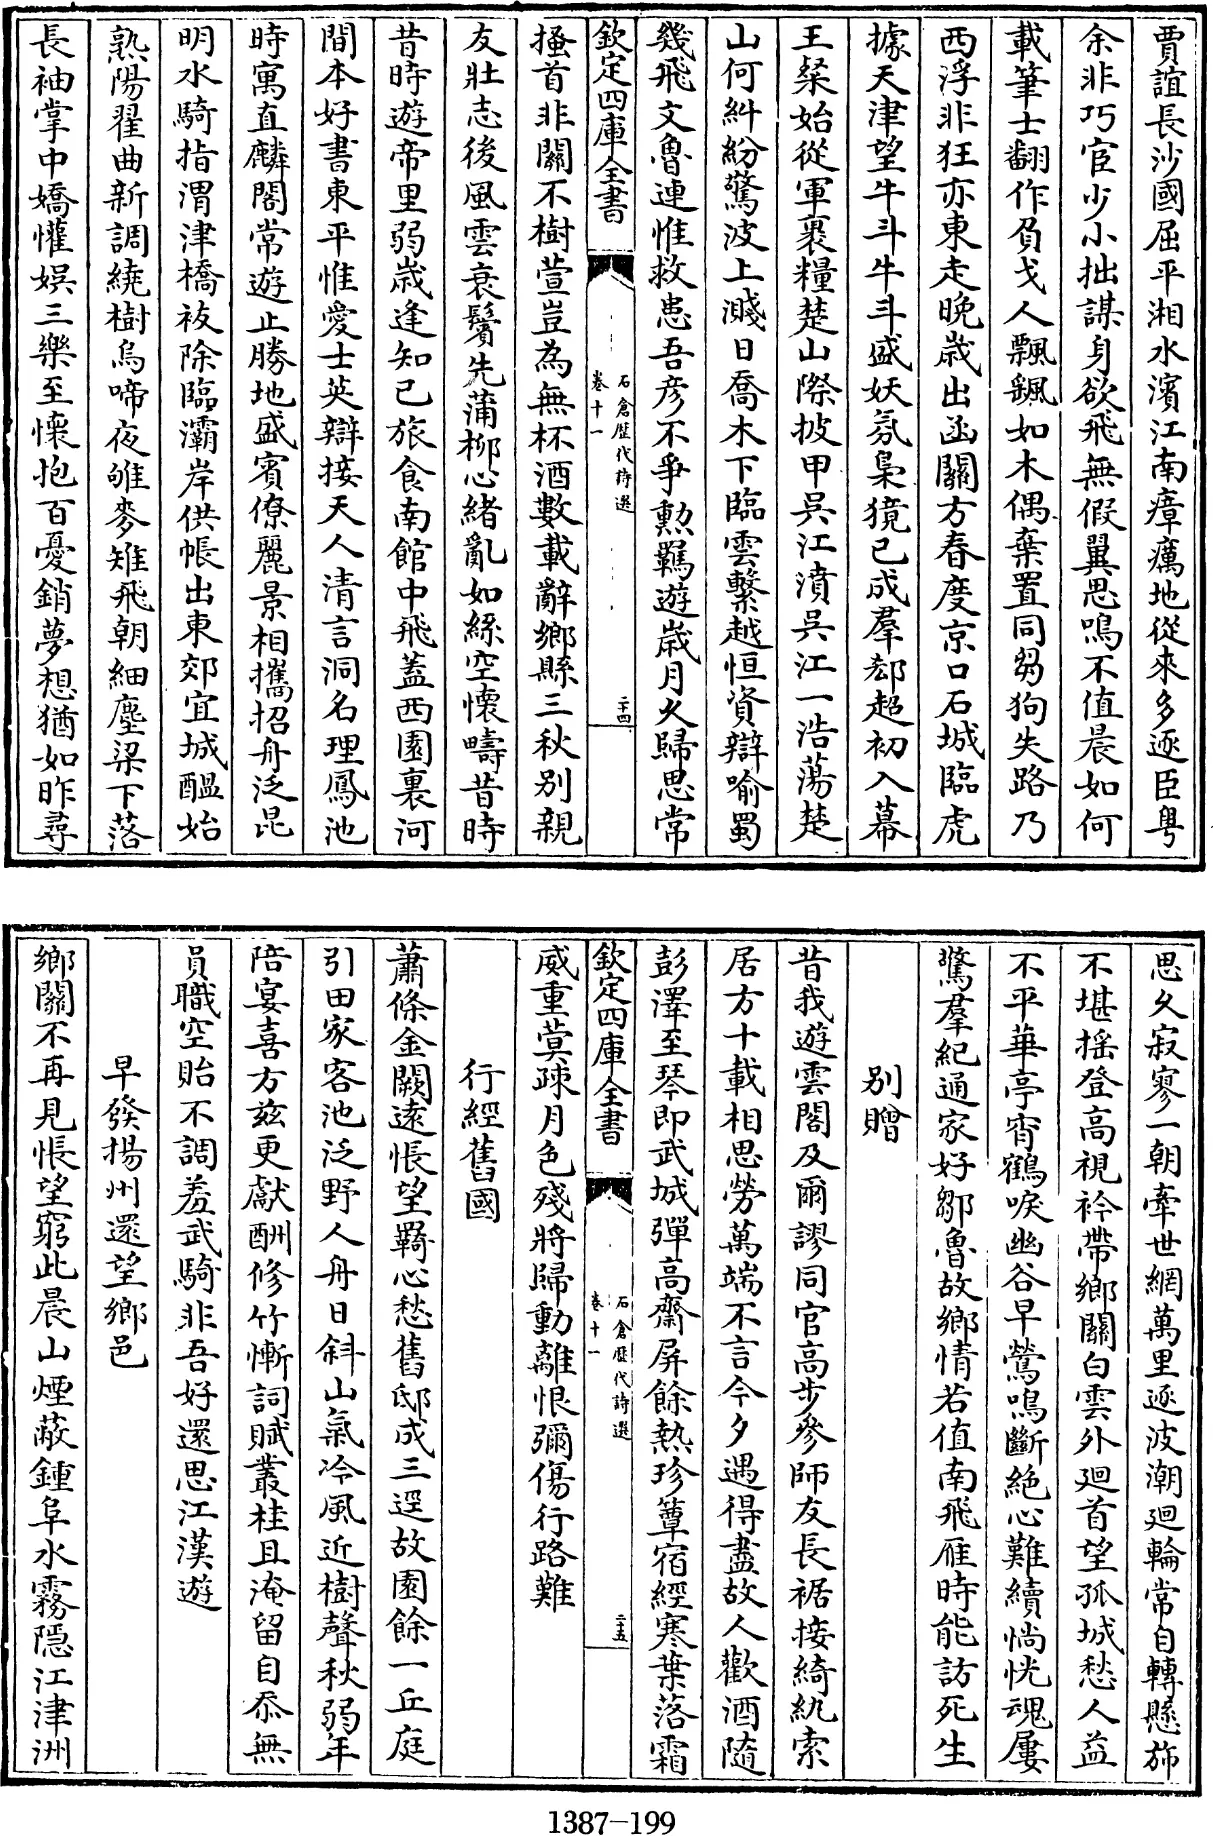 賈誼長沙國屈平湘水濱江南瘴癘地從來多逐臣粤
余非巧宦少小拙謀身欲飛無假翼思鳴不值晨如何
載筆士翻作負戈人飄飄如木偶棄置同芻狗失路乃
西浮非狂亦東走晚歲出函關方春度京口石城臨虎
據天津望牛斗牛斗盛妖氛梟獍已成羣郗超初入幕
王粲始從軍裹糧楚山際披甲吳江濆吳江一浩蕩楚
山何糾紛驚波上濺日喬木下臨雲繫越恒資辯喻蜀
幾飛文魯連惟救患吾彦不爭勲羈遊歲月久歸思常
欽定四庫全書
石倉歷代詩選
卷十一
二十四
搔首非關不樹萱豈為無杯酒數載辭鄉縣三秋别親
友壯志後風雲衰鬢先蒲柳心緒亂如絲空懷疇昔時
昔時遊帝里弱歲逢知已旅食南館中飛蓋西園裏河
間本好書東平惟愛士英辯接天人清言洞名理鳳池
時寓直麟閣常遊止勝地盛賓僚麗景相攜招舟泛昆
明水騎指渭津橋祓除臨灞岸供帳出東郊宜城醖始
熟陽翟曲新調繞樹烏啼夜雊麥雉飛朝細塵梁下落
長袖掌中嬌懽娯三樂至懷抱百憂銷夢想猶如昨尋
思久寂寥一朝牽世網萬里逐波潮廻輪常自轉懸斾
不堪揺登高視衿帶鄉關白雲外廻首望孤城愁人益
不平華亭宵鶴唳幽谷早鶯鳴斷絶心難續惝恍魂屢
驚羣紀通家好鄒魯故鄉情若值南飛雁時能訪死生
别贈
昔我遊雲閣及爾謬同官高步參師友長裾接綺紈索
居方十載相思勞萬端不言今夕遇得盡故人歡酒隨
彭澤至琴即武城彈高齋屏餘熱珍簟宿經寒葉落霜
欽定四庫全書
石倉歷代詩選
卷十一
二十五
威重蓂疎月色殘將歸動離恨彌傷行路難
行經舊國
蕭條金闕遠悵望羇心愁舊邸成三逕故園餘一丘庭
引田家客池泛野人舟日斜山氣冷風近樹聲秋弱年
陪宴喜方兹更獻酬修竹慚詞賦叢桂且淹留自忝無
員職空貽不調羞武騎非吾好還思江漢遊
早發揚州還望鄉邑
鄉關不再見悵望窮此晨山煙蔽鍾阜水霧隱江津洲
1387-199